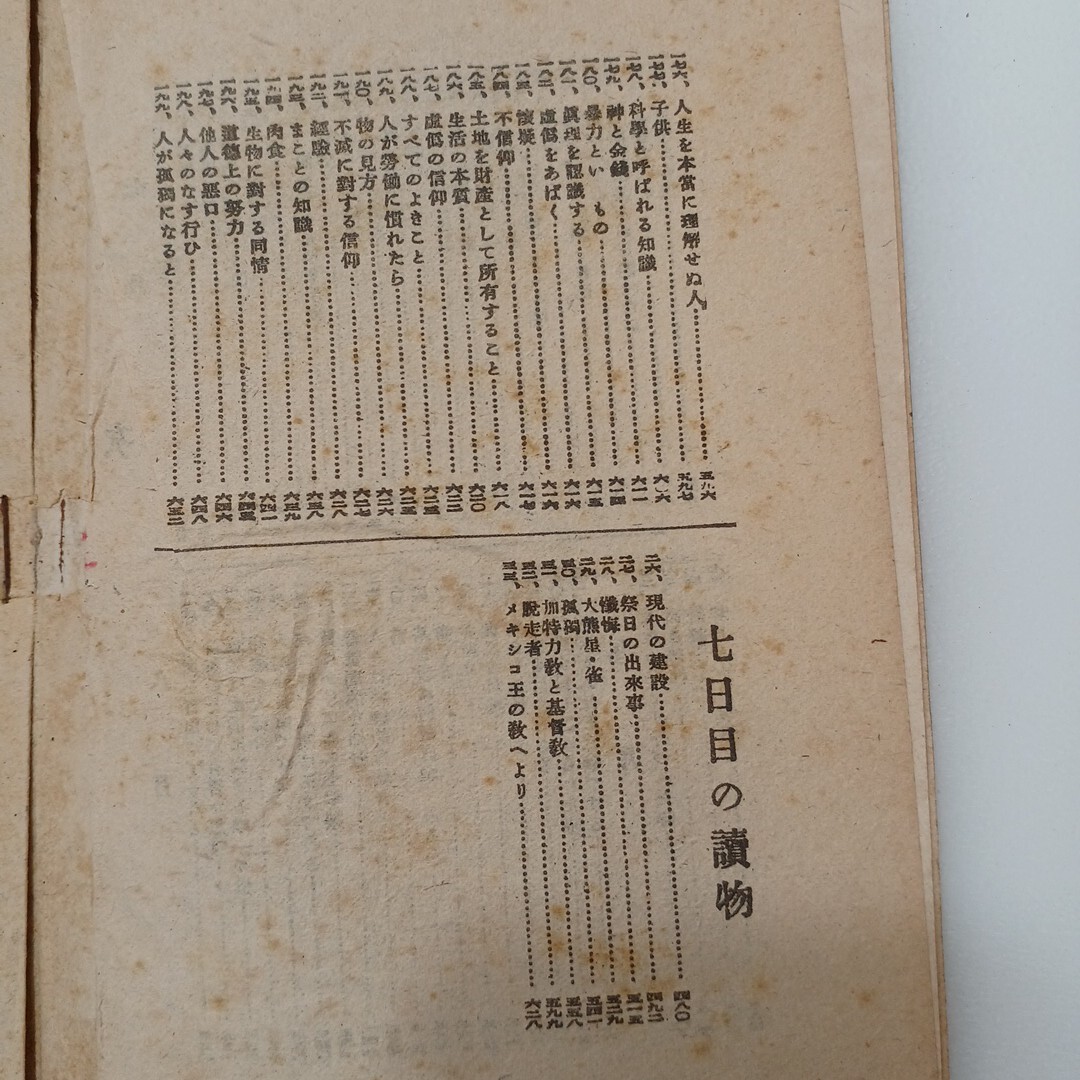 一七六、人生を本當に理解せぬ人……五九六
一七七、子供……五九七
一七八、科學と呼ばれる知識……六〇六
一七九、神と金錢……六一一
一八〇、暴力とい　もの……六一四
一八一、眞理を認識する……六一五
一八二、虛僞をあばく……六一六
一八三、懷疑……六一六
一八四、不信仰……六一七
一八五、土地を財產として所有すること……六一八
一八六、生活の本質……六二〇
一八七、虛僞の信仰……六二二
一八八、すべてのよきこと……六二三
一八九、人が勞働に慣れたら……六二五
一九〇、物の見方……六二六
一九一、不滅に對する信仰……六二七
一九二、經驗……六二八
一九三、まことの知識……六三八
一九四、肉食……六三九
一九五、生物に對する同情……六四一
一九六、道德上の努力……六四五
一九七、他人の惡口……六四六
一九八、人々のなす行ひ……六四八
一九九、人が孤獨になると……六五二
七日目の讀物
二六、現代の建設……四八〇
二七、祭日の出來事……四九二
二八、懺悔……五一五
二九、大熊星・雀……五二九
三〇、孤獨……五四一
三一、加特力敎と基督敎……五五八
三二、脫走者……五九九
三三、メキシコ王の敎へより……六二八